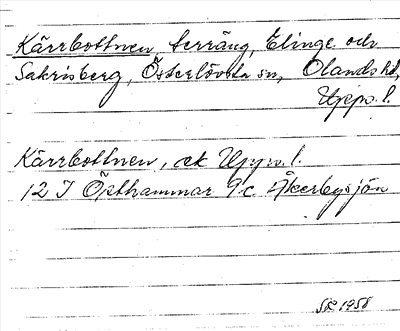 Kärrbottnen, terräng, Elinge och
Sakrisberg, Österlövsta sn, Olands hd,
Upps. l.
Kärrbottnen, ek Upps. l.
12 I Östhammar 9 c Åkerbysjön
SR 1958